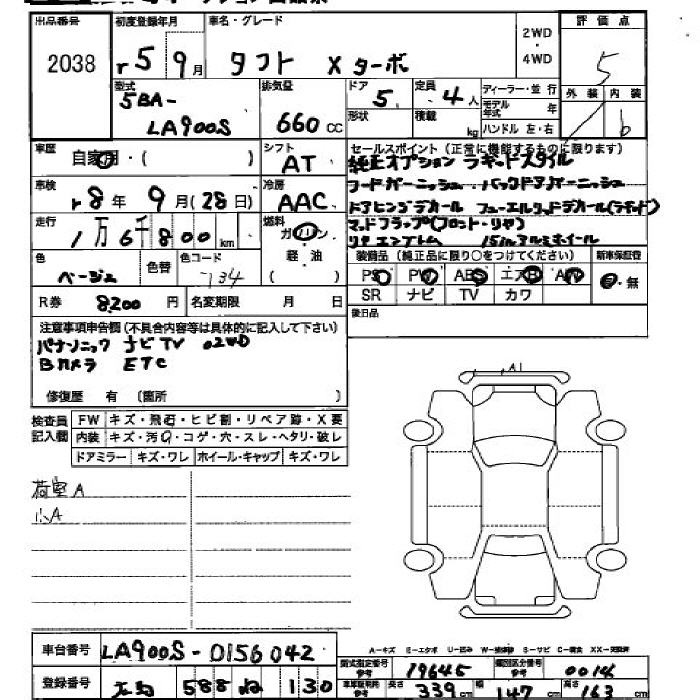 出品番号
2038
初度登録年月
r5 9月
車名・グレード
タフト Xターボ
2WD
・
4WD
評価点
5
外装 内装
b
型式
5BA-
LA900S
排気量
660 cc
ドア
5
定員
4人
形状
積載 kg
ディーラー・並行
モデル年式 年
ハンドル 左・右
車歴
自家用・( )
シフト
AT
車検
r8年 9月(28日)
冷房
AAC
走行
1万6千800km
燃料
ガソリン
軽・油
( )
色
ベージュ
色替
色コード
R券 8,200円
名変期限 月 日
セールスポイント(正常に機能するものに限ります)
純正オプション ラギッドスタイル
フードガーニッシュ バックドアガーニッシュ
ドアヒンジデカール フューエルリッドデカール(ラギッド)
マッドフラップ(フロント・リヤ)
リヤエンブレム 15inアルミホイール
装備品(純正品に限り○をつけてください)
新車保証書
PS PW ABS エアB AW
・無
SR ナビ TV カワ
後日品
注意事項申告欄(不具合内容等は具体的に記入して下さい)
パナソニック ナビTV
Bカメラ ETC
修復歴 有 (箇所
検査員
記入欄
FW キズ・飛石・ヒビ割・リペア跡・X要
内装 キズ・汚・コゲ・穴・スレ・ヘタリ・破レ
ドアミラー キズ・ワレ ホイール・キャップ キズ・ワレ
荷室A
小A
A1
車台番号
LA900S-0156042
登録番号
588 ね 130
A-キズ E-エクボ U-凹み W-補修跡 S-サビ C-腐食 XX-交換済
型式指定番号
参考
19645
類別区分番号
参考
0014
長さ 339cm 幅 147cm 高さ 163cm